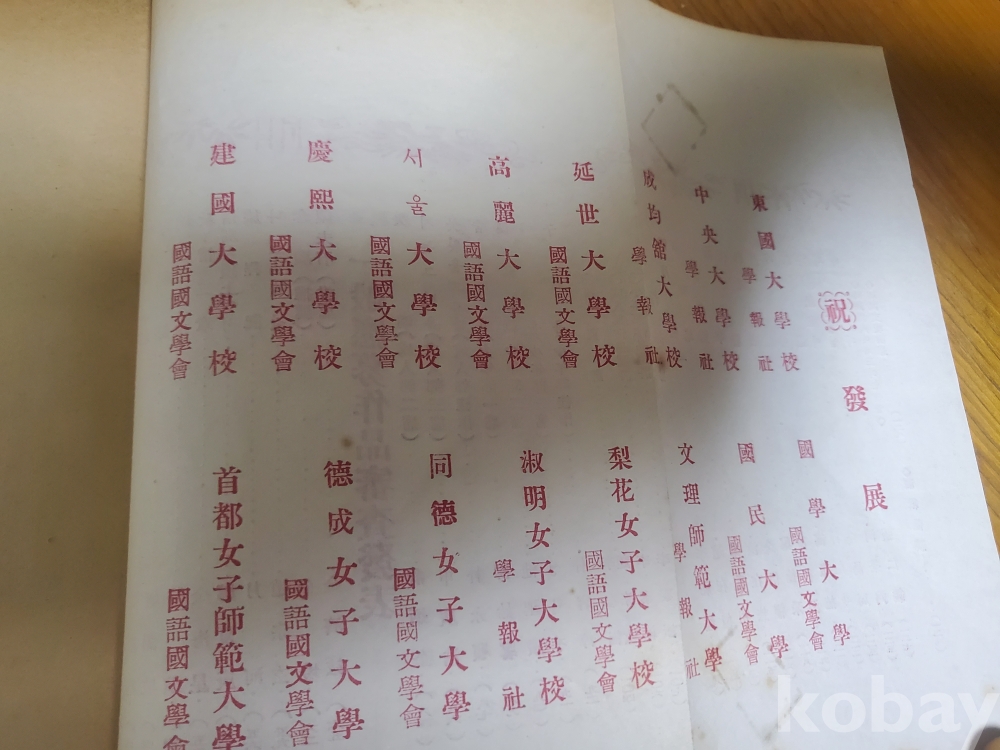 祝 發展
東國大學校
學報社
中央大學校
學報社
成均館大學校
學報社
延世大學校
國語國文學會
高麗大學校
國語國文學會
서울大學校
國語國文學會
慶熙大學校
國語國文學會
建國大學校
國語國文學會
國學大學
國語國文學會
國民大學
國語國文學會
文理師範大學
學報社
梨花女子大學校
國語國文學會
淑明女子大學校
學報社
同德女子大學
國語國文學會
德成女子大學
國語國文學會
首都女子師範大學
國語國文學會
kobay